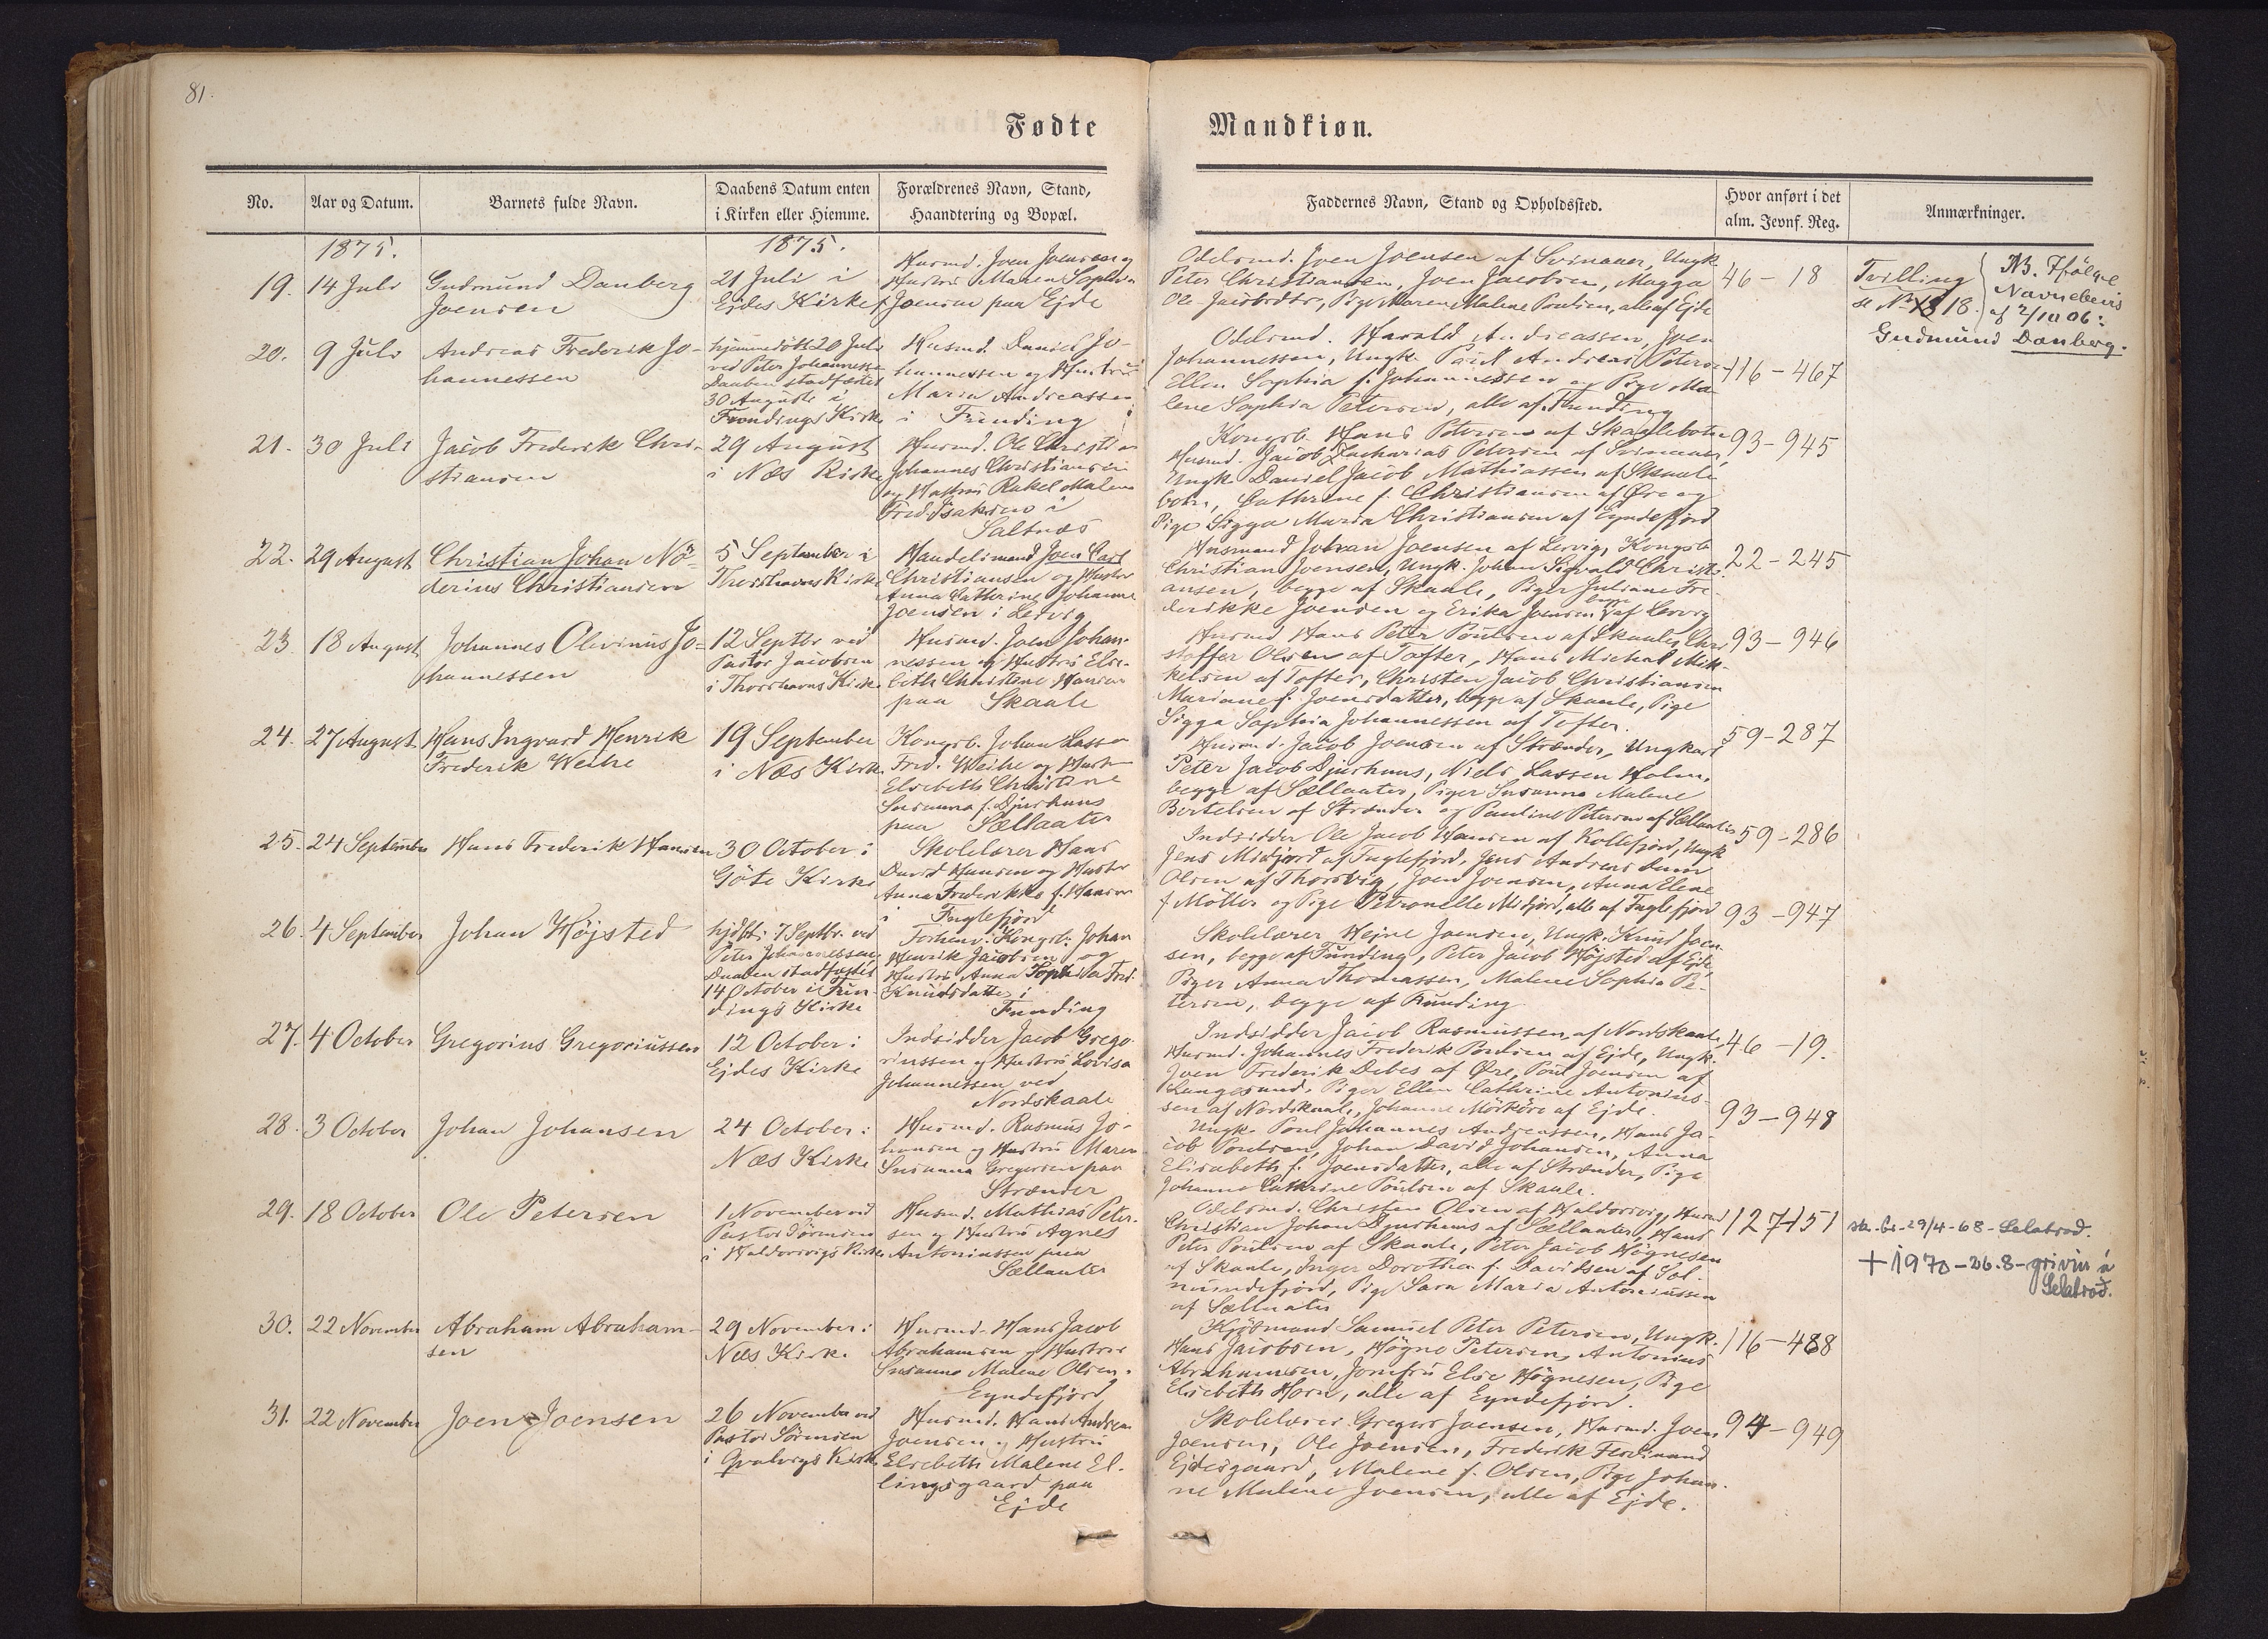 81.
Fødte Mandkiøn.
No. Aar og Datum. Barnets fulde Navn. Daabens Datum enten i Kirken eller Hiemme. Forældrenes Navn, Stand, Haandtering og Bopæl. Faddernes Navn, Stand og Opholdssted. Hvor anført i det alm. Jevnf. Reg. Anmærkninger.
1875. 1875.
19. 14 Juli
Gudmund Danberg
Joensen
21 Juli i
Ejdes Kirke
Husmd. Joen Joensen og
Hustru Maren Sophia
Joensen paa Ejde
Odelsmd. Joen Joensen af Svinaaer, Ungk
Peter Christiansen, Joen Jacobsen, Magga
Ole Jacobsdtr, Pige Maren Malene Poulsen, alle af Ejde
46 - 18
Tvilling
se No 18
NB. Ifölge
Navnebevis
af 2/10 06:
Gudmund Danberg.
20. 9 Juli
Andreas Frederik Jo-
hannessen
hjemmedöbt 20 Juli
ved Peter Johannessen
Daaben stadfæstet
30 Augusti i
Fundings Kirke
Husmd. Daniel Jo-
hannessen og Hustru
Maria Andreassen
i Funding
Odelsmd. Harald Andreassen, Joen
Johannessen, Ungk. Poul Andreas Petersen
Ellen Sophia f. Johannessen og Pige Ma-
lene Sophia Petersen, alle af Funding
116 - 467
21. 30 Juli
Jacob Frederik Chri-
stiansen
29 August
i Næs Kirke
Husmd. Ole Christian
Johannes Christiansen
og Hustru Rakel Malene
Fred. Isaksen i
Saltnæs
Kongsb. Hans Petersen af Skaalebotn
Husmd. Jacob Zacharias Petersen af Svinaaer,
Ungk. Daniel Jacob Mathiassen af Skaale
botn, Cathrine f. Christiansen af Øre og
Pige Sigga Maria Christiansen af Eyndefjord
93 - 945
22. 29 August
Christian Johan Nö-
derius Christiansen
5 September i
Thorshavns Kirke
Handelsmand Joen Carl
Christiansen og Hustru
Anna Cathrine Johanne
Joensen i Lervig
Husmand Johan Joensen af Lervig, Kongsb.
Christian Joensen, Ungk. Johan Sigvald Christi-
ansen, begge af Skaale, Piger Juliane Fre-
derikke Joensen og Erika Joensen begge af Lervig
22 - 245
23. 18 August
Johannes Olevinus Jo-
hannessen
12 Septbr. ved
Pastor Jacobsen
i Thorshavns Kirke
Husmd. Joen Johan-
nessen og Hustru Else-
beth Christine Hansen
paa Skaale
Husmd Hans Peter Poulsen af Skaale, Chri-
stoffer Olsen af Tofter, Hans Michal Mik-
kelsen af Tofter, Christen Jacob Christiansen
Mariane f. Joensdatter, begge af Skaale, Pige
Sigga Sophia Johannessen af Tofter.
93 - 946
24. 27 August
Hans Ingvard Henrik
Frederik Weihe
19 September
i Næs Kirke
Kongsb. Johan Lasse
Fred. Weihe og Hustru
Elsebeth Christine
Susanna f. Djurhuus
paa Sællaater
Husmd. Jacob Joensen af Strænder, Ungkarl
Peter Jacob Djurhuus, Niels Lassen Holm,
begge af Sællaater, Piger Susanna Malene
Bertelsen af Strænder og Pauline Petersen af Sællaater
59 - 287
25. 24 September
Hans Frederik Hansen
30 October i
Göte Kirke
Skolelærer Hans
David Hansen og Hustru
Anna Frederikke f. Hansen
i Fuglefjord
Indsidder Ole Jacob Hansen af Kollefjord, Ungk
Jens Midjord af Fuglefjord, Jens Andreas Dam
Olsen af Thorsvig, Joen Joensen, Anna Elene
f Möller og Pige Petronelle Midjord, alle af Fuglefjord
59 - 286
26. 4 September
Johan Højsted
hjdbt. 7 Septbr. ved
Peter Johannessen,
Daaben stadfæstet
14 October i Fun-
dings Kirke
Forhenv. Kongsb. Johan
Henrik Jacobsen og
Hustru Anna Sophia Fred.
Knudsdatter i
Funding
Skolelærer Hejne Joensen, Ungk. Knud Joen-
sen, begge af Funding, Peter Jacob Højsted af Ejde,
Piger Anna Thomassen, Malene Sophia Pe-
tersen, begge af Funding
93 - 947
27. 4 October
Gregorius Gregoriussen
12 October i
Ejdes Kirke
Indsidder Jacob Grego-
riussen og Hustru Lovisa
Johannessen ved
Nordskaale
Indsidder Jacob Rasmussen af Nordskaale,
Husmd. Johannes Frederik Poulsen af Ejde, Ungk.
Joen Frederik Debes af Øre, Poul Joensen af
Langesund, Piger Ellen Cathrine Antonius-
sen af Nordskaale, Johanne Mörköre af Ejde.
46 - 19.
28. 3 October
Johan Johansen
24 October i
Næs Kirke
Husmd. Rasmus Jo-
hansen og Hustru Maren
Susanna Gregersen paa
Strænder
Ungk. Poul Johannes Andreassen, Hans Ja-
cob Poulsen, Johan David Johansen, Anna
Elisabeth f. Joensdatter, alle af Strænder, Pige
Johanne Cathrine Poulsen af Skaale.
93 - 948
29. 18 October
Ole Petersen
1 November ved
Pastor Sörensen
i Haldorsvigs Kirke
Husmd. Mathias Peter-
sen og Hustru Agnes
Antoniussen paa
Sællaater
Odelsmd. Christen Olsen af Haldorsvig, Husmd
Christian Johan Djurhuus af Sællaater, Hans
Peter Poulsen af Skaale, Peter Jacob Högnesen
af Skaale, Inger Dorothea f. Davidsen af Sol-
mundefjord, Pige Sara Maria Antoniussen
af Sællaater
127-151
sk. br. 29/4-68 - Selatrað.
+ 1970 - 26.8 - grivin á
Selatrað.
30. 22 November
Abraham Abraham-
sen
29 November i
Næs Kirke
Husmd. Hans Jacob
Abrahamsen og Hustru
Susanna Malene Olsen
Eyndefjord
Kjöbmand Samuel Peter Petersen, Ungk.
Hans Jacobsen, Högne Petersen, Antonius
Abrahamsen, Jomfru Else Högnesen, Pige
Elsebeth Horn, alle af Eyndefjord.
116 - 488
31. 22 November
Joen Joensen
26 November ved
Pastor Sörensen
i Qvalvigs Kirke
Husmd. Hans Andreas
Joensen og Hustru
Elsebeth Malene El-
lingsgaard paa
Ejde
Skolelærer Gregers Joensen, Husmd. Joen
Joensen, Ole Joensen, Frederik Ferdinand
Ejdesgaard, Malene f. Olsen, Pige Johan-
ne Malene Joensen, alle af Ejde.
94 - 949